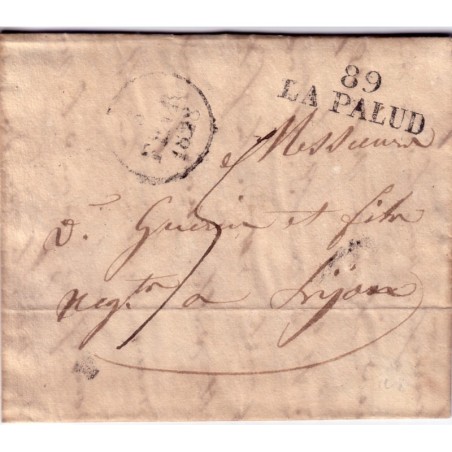 89
LA PALUD
1828
Messieurs
Vᵉ Guérin et fils
negᵗˢ a Lyon